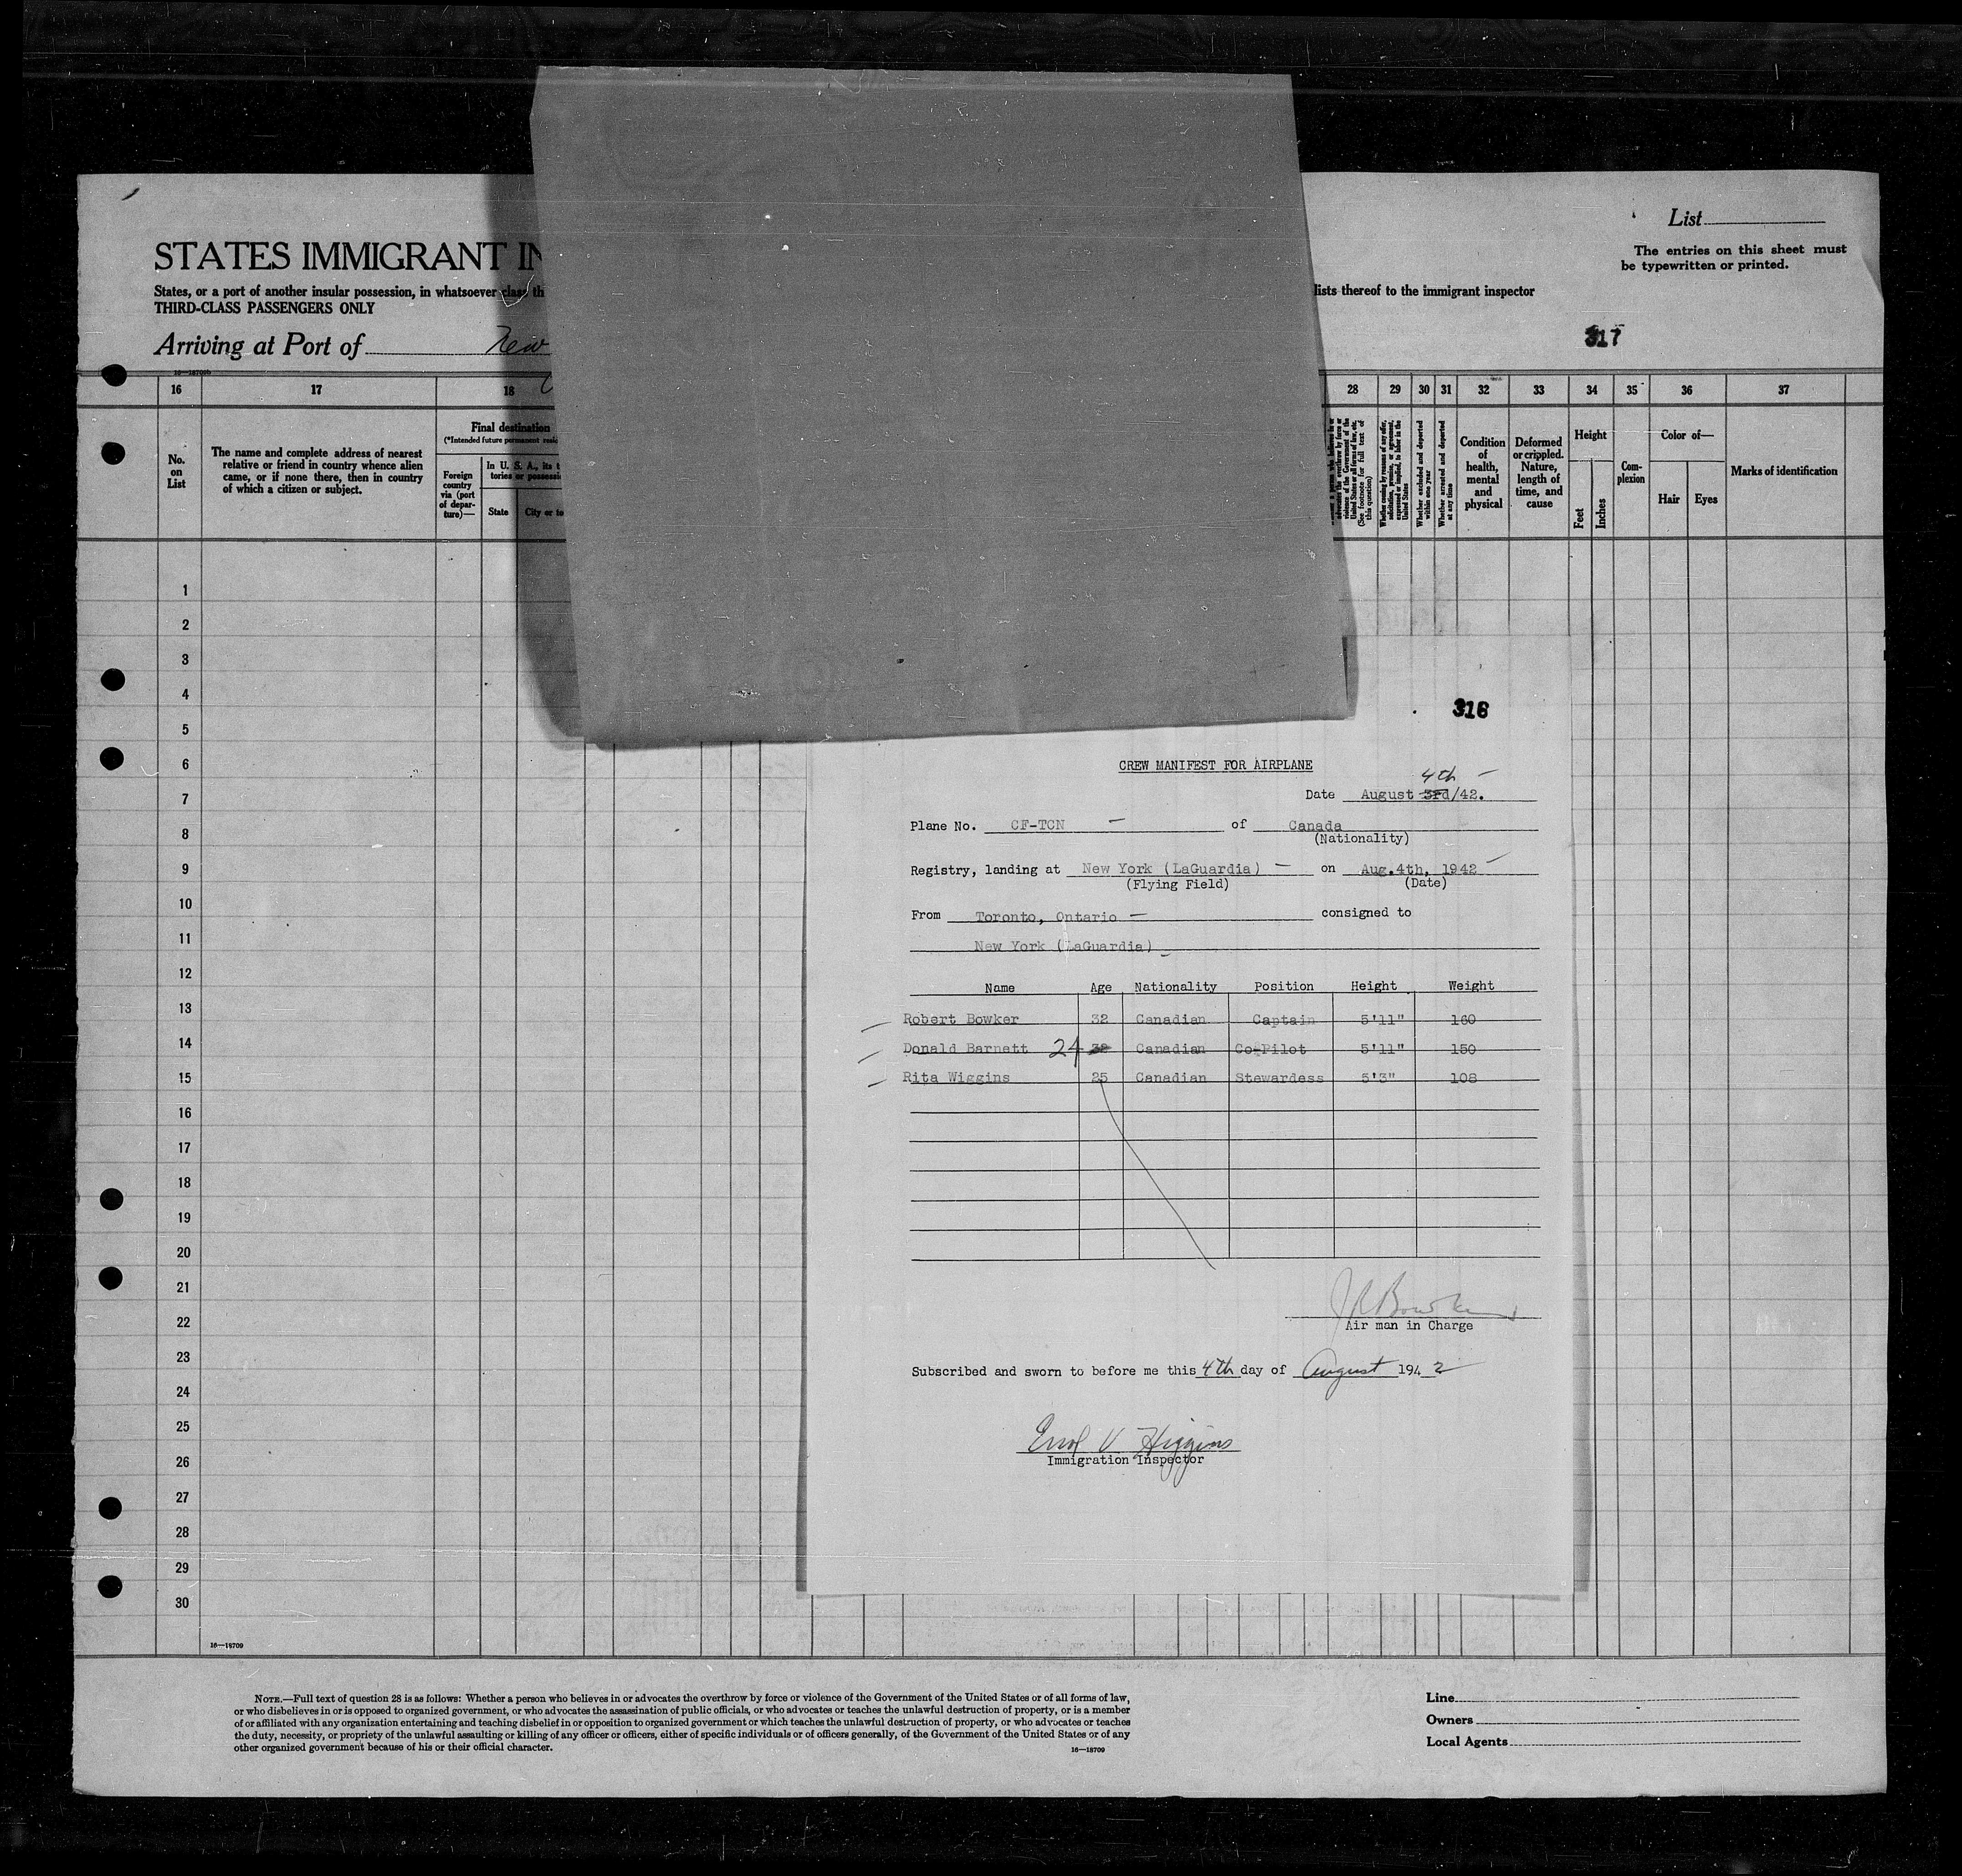 List
STATES IMMIGRANT IN
The entries on this sheet must
be typewritten or printed.
States, or a port of another insular possession, in whatsoever class th
lists thereof to the immigrant inspector
THIRD-CLASS PASSENGERS ONLY
317
Arriving at Port of New
16 17 18 28 29 30 31 32 33 34 35 36 37
No.
on
List
The name and complete address of nearest
relative or friend in country whence alien
came, or if none there, then in country
of which a citizen or subject.
Final destination
(*Intended future permanent resid
Foreign
country
via (port
of depar-
ture)—
In U. S. A., its t
tories or possessi
State
City or to
advocates the overthrow by force or
violence of the Government of the
United States or all forms of law, etc.
(See footnote for full text of
this question)
Whether coming by reasons of any offer,
solicitation, promise, or agreement,
expressed or implied, to labor in the
United States
Whether excluded and deported
within one year
Whether arrested and deported
at any time
Condition
of
health,
mental
and
physical
Deformed
or crippled.
Nature,
length of
time, and
cause
Height
Feet
Inches
Com-
plexion
Color of—
Hair
Eyes
Marks of identification
1
2
3
4
5
6
7
8
9
10
11
12
13
14
15
16
17
18
19
20
21
22
23
24
25
26
27
28
29
30
16—18709
316
CREW MANIFEST FOR AIRPLANE
4th
Date August 3rd/42.
Plane No. CF-TCN of Canada
(Nationality)
Registry, landing at New York (LaGuardia) on Aug.4th, 1942
(Flying Field) (Date)
From Toronto, Ontario consigned to
New York (LaGuardia)
Name Age Nationality Position Height Weight
Robert Bowker 32 Canadian Captain 5'11" 160
Donald Barnett 24 Canadian Co-Pilot 5'11" 150
Rita Wiggins 25 Canadian Stewardess 5'3" 108
J R Bowker
Air man in Charge
Subscribed and sworn to before me this 4th day of August 1942
Errol V Higgins
Immigration Inspector
NOTE.—Full text of question 28 is as follows: Whether a person who believes in or advocates the overthrow by force or violence of the Government of the United States or of all forms of law,
or who disbelieves in or is opposed to organized government, or who advocates the assassination of public officials, or who advocates or teaches the unlawful destruction of property, or is a member
of or affiliated with any organization entertaining and teaching disbelief in or opposition to organized government or which teaches the unlawful destruction of property, or who advocates or teaches
the duty, necessity, or propriety of the unlawful assaulting or killing of any officer or officers, either of specific individuals or of officers generally, of the Government of the United States or of any
other organized government because of his or their official character.
16—18709
Line
Owners
Local Agents